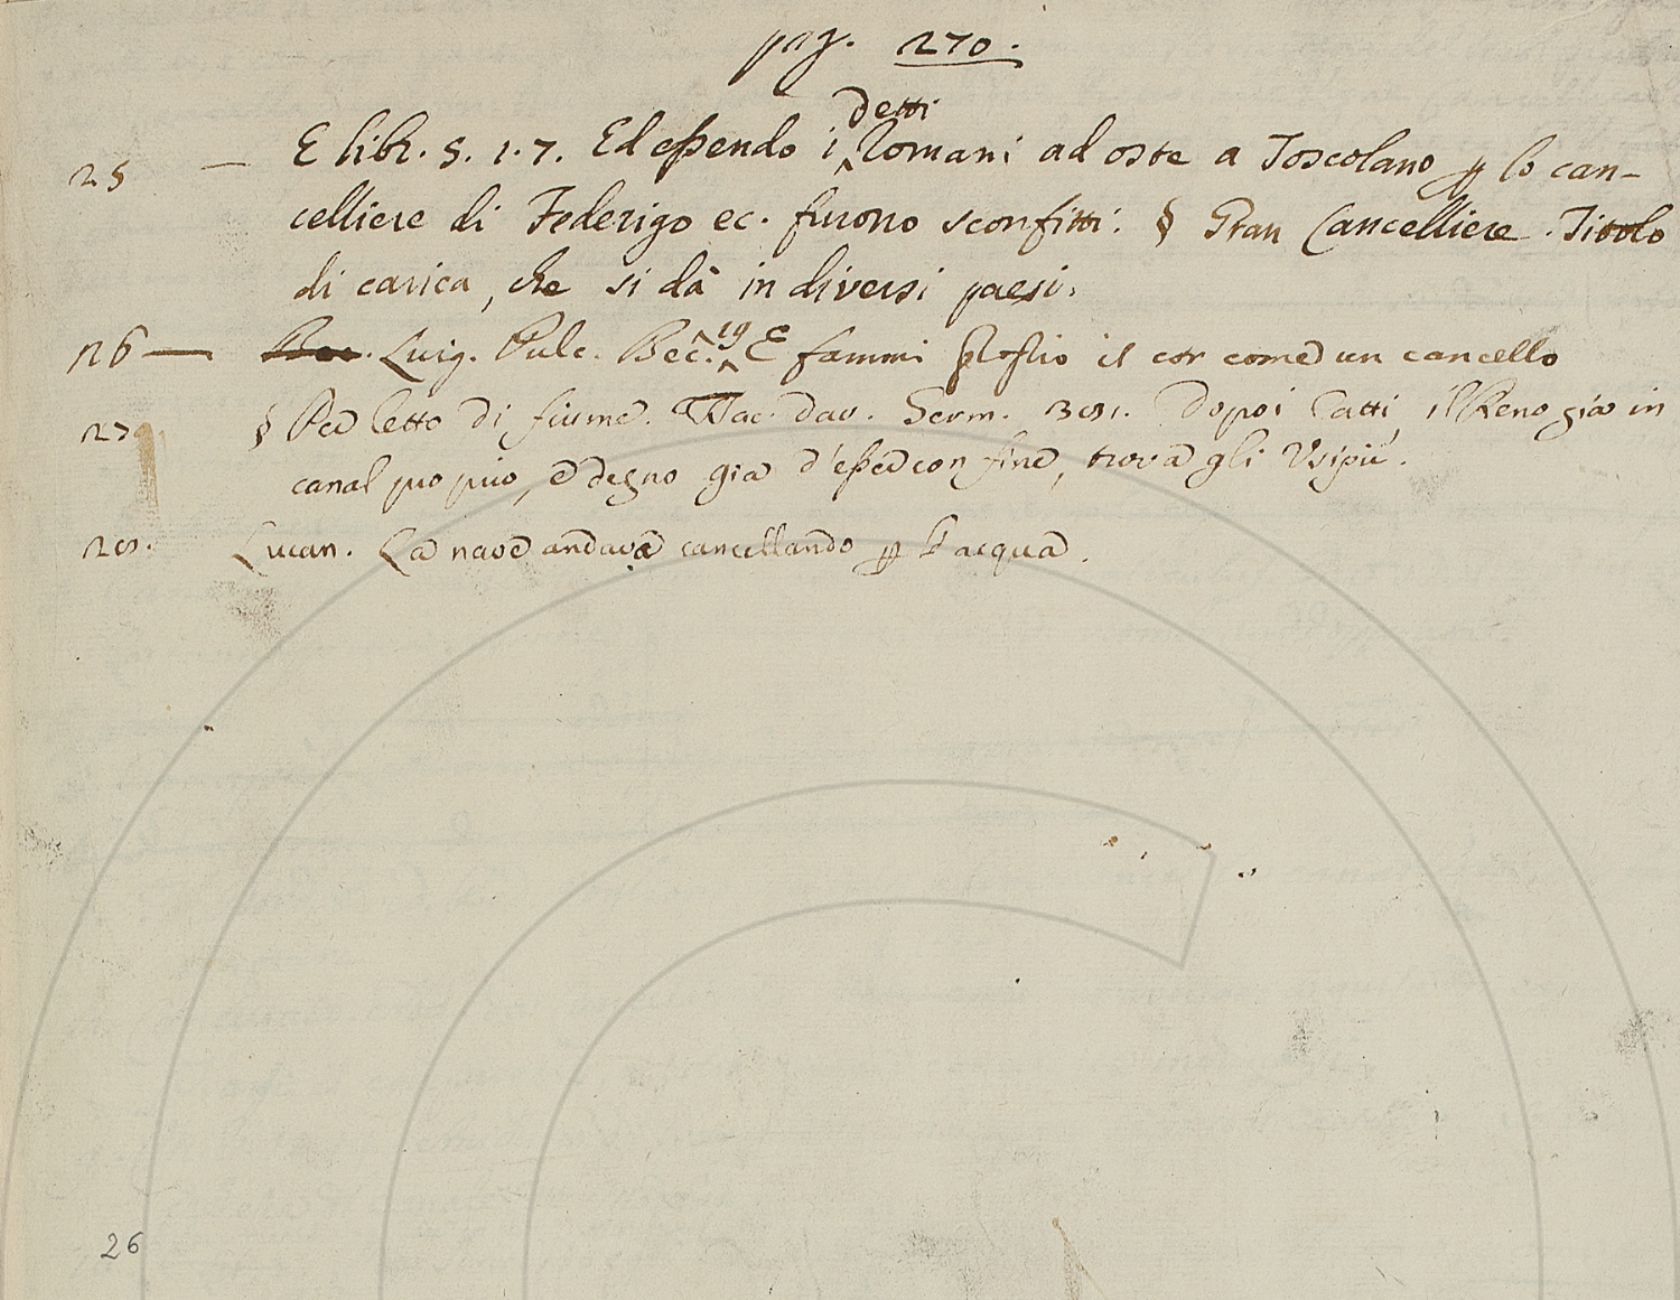 pag. 270.
detti
25 — E libr. 5. 1. 7. Ed essendo i Romani ad oste a Toscolano p lo can-
celliere di Federigo ec. furono sconfitti. § Gran Cancelliere. Titolo
di carica, che si dà in diversi paesi.
19
26 — Luig. Pulc. Bec. E fammi il cor come un cancello
27 § Per letto di fiume. Tac. Dav. Germ. 381. Dopoi Catti, il Reno già in
canal proprio, e degno già d'esser confine, trova gli Usipii.
28. Lucan. La nave andava cancellando p l'acqua.
26